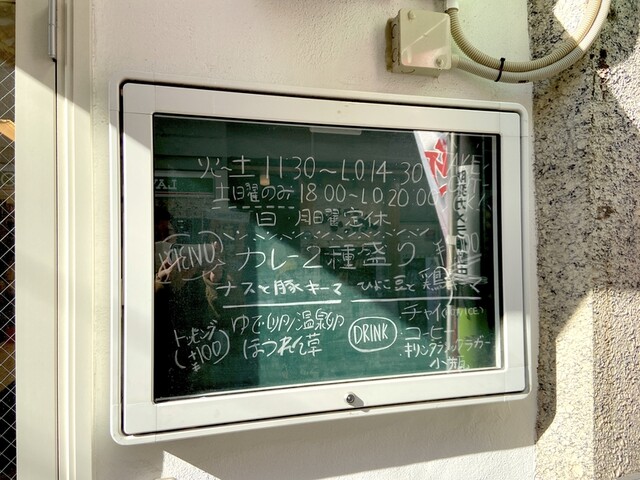 火~土 11:30~LO14:30
土曜のみ 18:00~LO20:00
日 月曜定休
MENU
カレー2種盛り
ナスと豚キーマ ひよこ豆と鶏キーマ
トッピング
(+¥100)
ゆで卵/温泉卵
ほうれん草
DRINK
チャイ
コーヒー
キリンクラシックラガー
小瓶